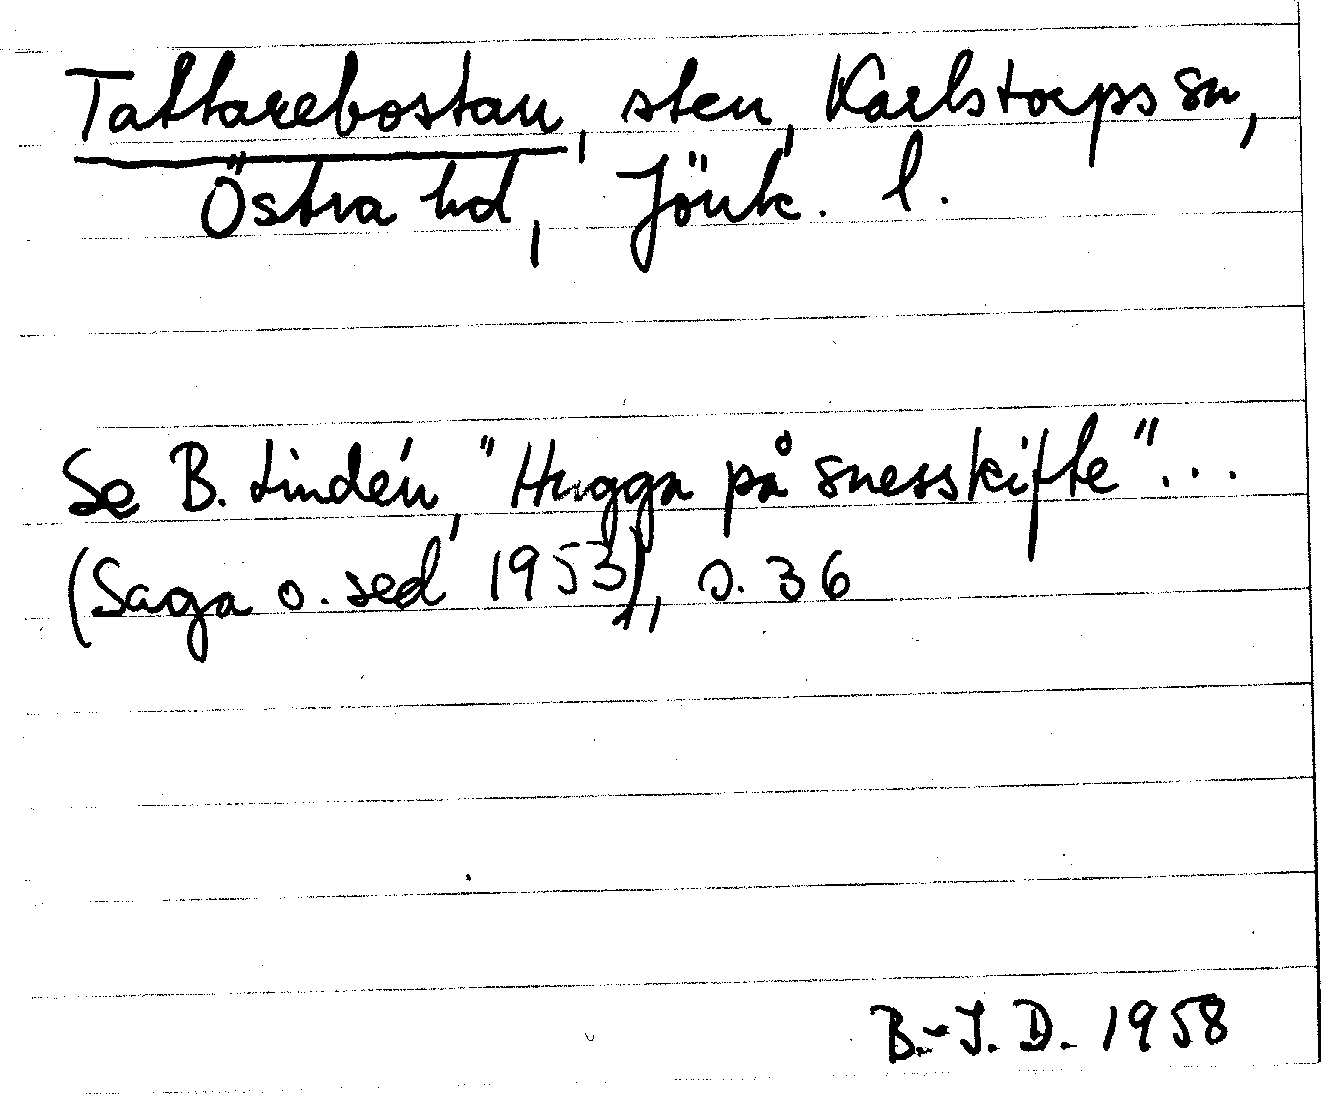 Tattarebostan, sten, Karlstorps sn,
Östra hd, Jönk. l.
Se B. Lindén, "Hugga på snesskifte"...
(Saga o. sed 1953), s. 36
B.-I. D. 1958